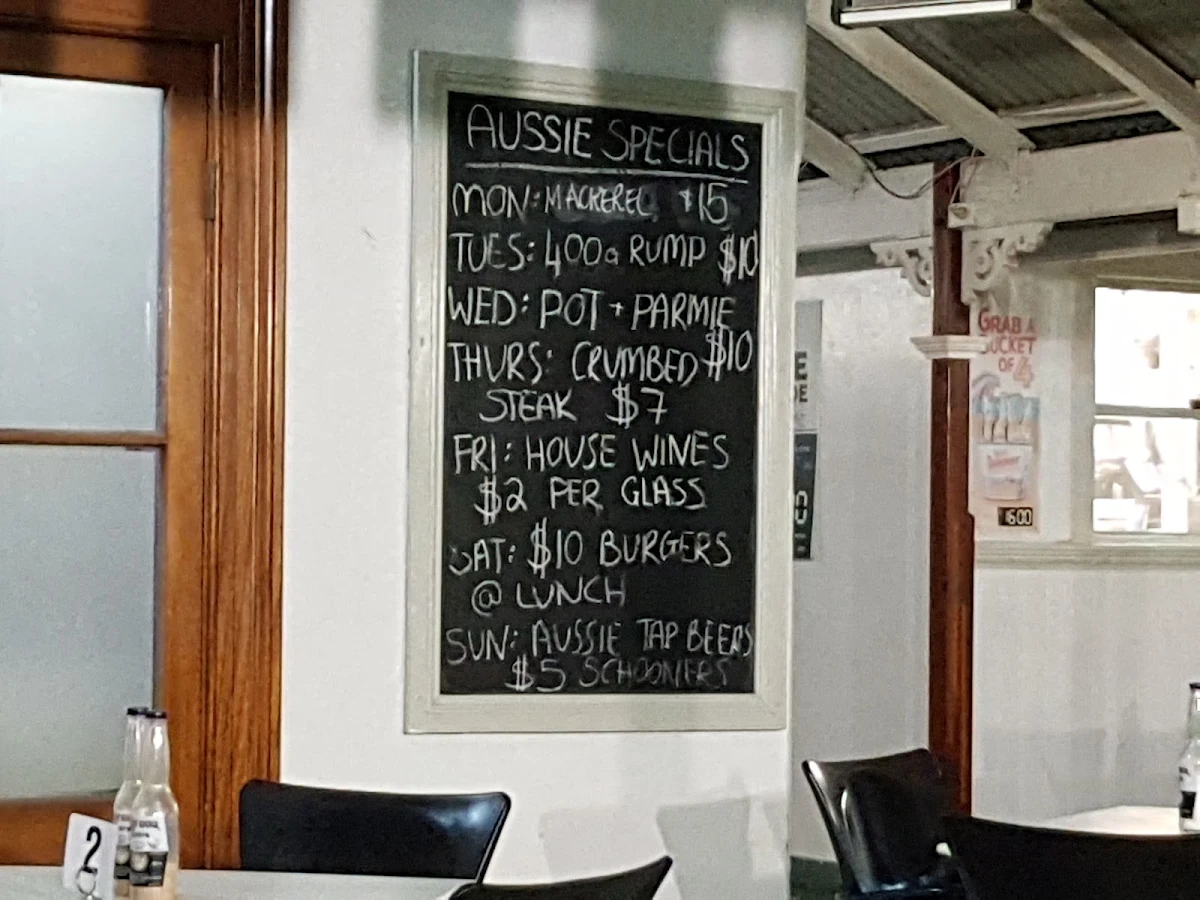 AUSSIE SPECIALS
MON: MACKEREL $15
TUES: 400G RUMP $10
WED: POT + PARMIE
$10
THURS: CRUMBED
STEAK $7
FRI: HOUSE WINES
$2 PER GLASS
SAT: $10 BURGERS
@ LUNCH
SUN: AUSSIE TAP BEERS
$5 SCHOONERS
GRAB A
BUCKET
OF 4
1600
2